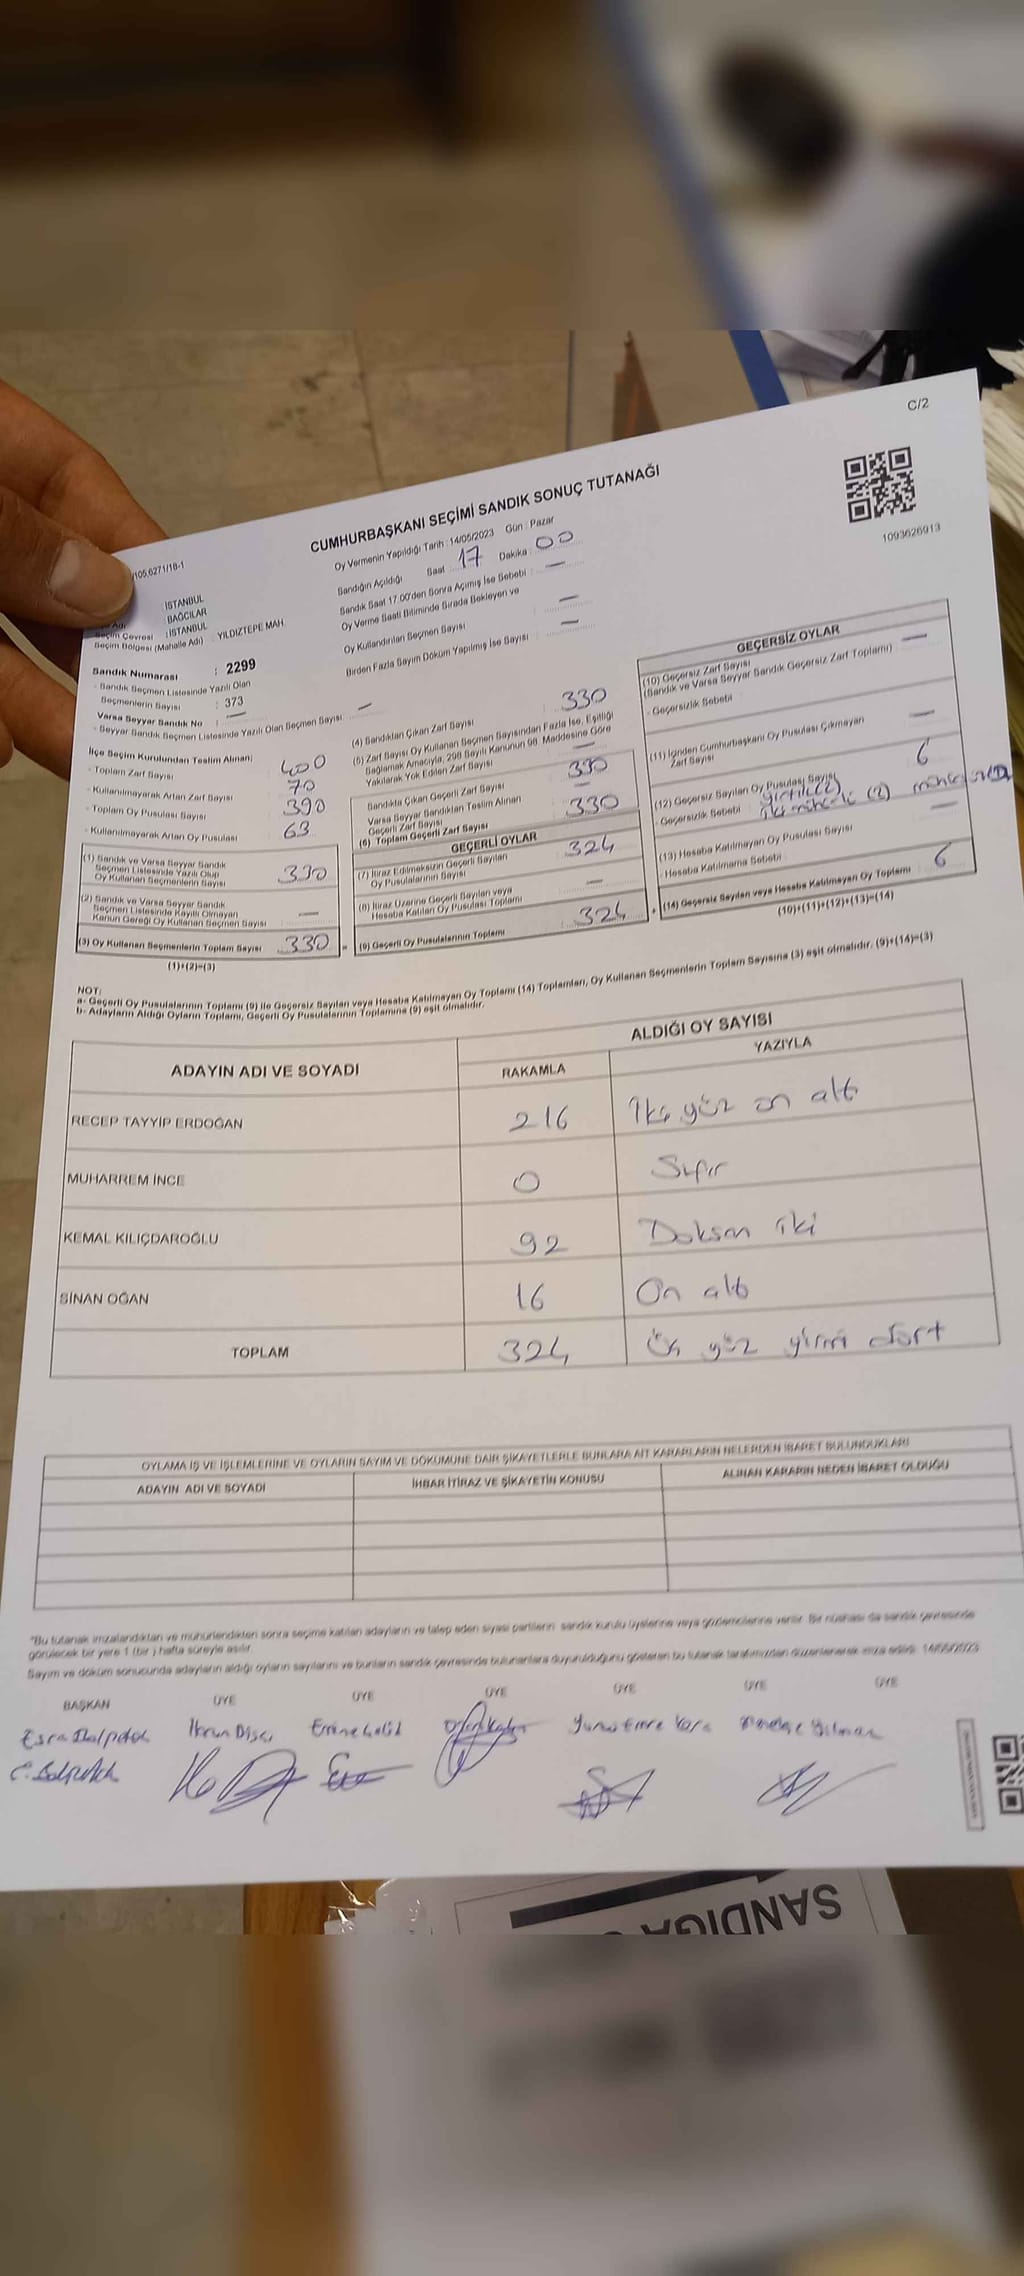 C/2
CUMHURBAŞKANI SEÇİMİ SANDIK SONUÇ TUTANAĞI
1093626913
/105.6271/18-1
İSTANBUL
BAĞCILAR
Seçim Çevresi : İSTANBUL
Seçim Bölgesi (Mahalle Adı) : YILDIZTEPE MAH
Oy Vermenin Yapıldığı Tarih : 14/05/2023 Gün : Pazar
Sandığın Açıldığı Saat : 17 Dakika : 00
Sandık Saat 17:00'den Sonra Açımış İse Sebebi : —
Oy Verme Saati Bitiminde Sırada Bekleyen ve
Oy Kullandırılan Seçmen Sayısı —
Birden Fazla Sayım Döküm Yapılmış İse Sayısı : —
Sandık Numarası : 2299
- Sandık Seçmen Listesinde Yazılı Olan
Seçmenlerin Sayısı : 373
Varsa Seyyar Sandık No : —
- Seyyar Sandık Seçmen Listesinde Yazılı Olan Seçmen Sayısı : —
İlçe Seçim Kurulundan Teslim Alınan;
- Toplam Zarf Sayısı : 400
- Kullanılmayarak Artan Zarf Sayısı : 70
- Toplam Oy Pusulası Sayısı : 390
- Kullanılmayarak Artan Oy Pusulası : 63
(1) Sandık ve Varsa Seyyar Sandık
Seçmen Listesinde Yazılı Olup
Oy Kullanan Seçmenlerin Sayısı : 330
(2) Sandık ve Varsa Seyyar Sandık
Seçmen Listesinde Kayıtlı Olmayan
Kanun Gereği Oy Kullanan Seçmen Sayısı : —
(3) Oy Kullanan Seçmenlerin Toplam Sayısı : 330
(1)+(2)=(3)
(4) Sandıktan Çıkan Zarf Sayısı : 330
(5) Zarf Sayısı Oy Kullanan Seçmen Sayısından Fazla İse, Eşitliği
Sağlamak Amacıyla, 298 Sayılı Kanunun 98. Maddesine Göre
Yakılarak Yok Edilen Zarf Sayısı : —
Sandıkta Çıkan Geçerli Zarf Sayısı : 330
Varsa Seyyar Sandıktan Teslim Alınan
Geçerli Zarf Sayısı : —
(6) Toplam Geçerli Zarf Sayısı : 330
GEÇERLİ OYLAR
(7) İtiraz Edilmeksizin Geçerli Sayılan
Oy Pusulalarının Sayısı : 324
(8) İtiraz Üzerine Geçerli Sayılan veya
Hesaba Katılan Oy Pusulası Toplamı : —
(9) Geçerli Oy Pusulalarının Toplamı : 324
GEÇERSİZ OYLAR
(10) Geçersiz Zarf Sayısı
(Sandık ve Varsa Seyyar Sandık Geçersiz Zarf Toplamı) : —
- Geçersizlik Sebebi :
(11) İçinden Cumhurbaşkanı Oy Pusulası Çıkmayan
Zarf Sayısı : —
(12) Geçersiz Sayılan Oy Pusulası Sayısı : 6
- Geçersizlik Sebebi : yırtık(2)
(2)
(13) Hesaba Katılmayan Oy Pusulası Sayısı : —
- Hesaba Katılmama Sebebi :
(14) Geçersiz Sayılan veya Hesaba Katılmayan Oy Toplamı : 6
(10)+(11)+(12)+(13)=(14)
NOT:
a- Geçerli Oy Pusulalarının Toplamı (9) ile Geçersiz Sayılan veya Hesaba Katılmayan Oy Toplamı (14) Toplamları, Oy Kullanan Seçmenlerin Toplam Sayısına (3) eşit olmalıdır. (9)+(14)=(3)
b- Adayların Aldığı Oyların Toplamı, Geçerli Oy Pusulalarının Toplamına (9) eşit olmalıdır.
ADAYIN ADI VE SOYADI
ALDIĞI OY SAYISI
RAKAMLA YAZIYLA
RECEP TAYYİP ERDOĞAN 216 İki yüz on altı
MUHARREM İNCE 0 Sıfır
KEMAL KILIÇDAROĞLU 92 Doksan iki
SİNAN OĞAN 16 On altı
TOPLAM 324 Üç yüz yirmi dört
OYLAMA İŞ VE İŞLEMLERİNE VE OYLARIN SAYIM VE DÖKÜMÜNE DAİR ŞİKAYETLERLE BUNLARA AİT KARARLARIN NELERDEN İBARET BULUNDUKLARI
ADAYIN ADI VE SOYADI İHBAR İTİRAZ VE ŞİKAYETİN KONUSU ALINAN KARARIN NEDEN İBARET OLDUĞU
*Bu tutanak imzalandıktan ve mühürlendikten sonra seçime katılan adayların ve talep eden siyasi partilerin sandık kurulu üyelerine veya gözlemcilerine verilir. Bir nüshası da sandık çevresinde
görülecek bir yere 1 (bir) hafta süreyle asılır.
Sayım ve döküm sonucunda adayların aldığı oyların sayılarını ve bunların sandık çevresinde bulunanlara duyurulduğunu gösteren bu tutanak tarafımızdan düzenlenerek imza edildi. 14/05/2023
BAŞKAN ÜYE ÜYE ÜYE ÜYE ÜYE ÜYE
Yunus Emre Kara Yılmaz
SANDIĞA